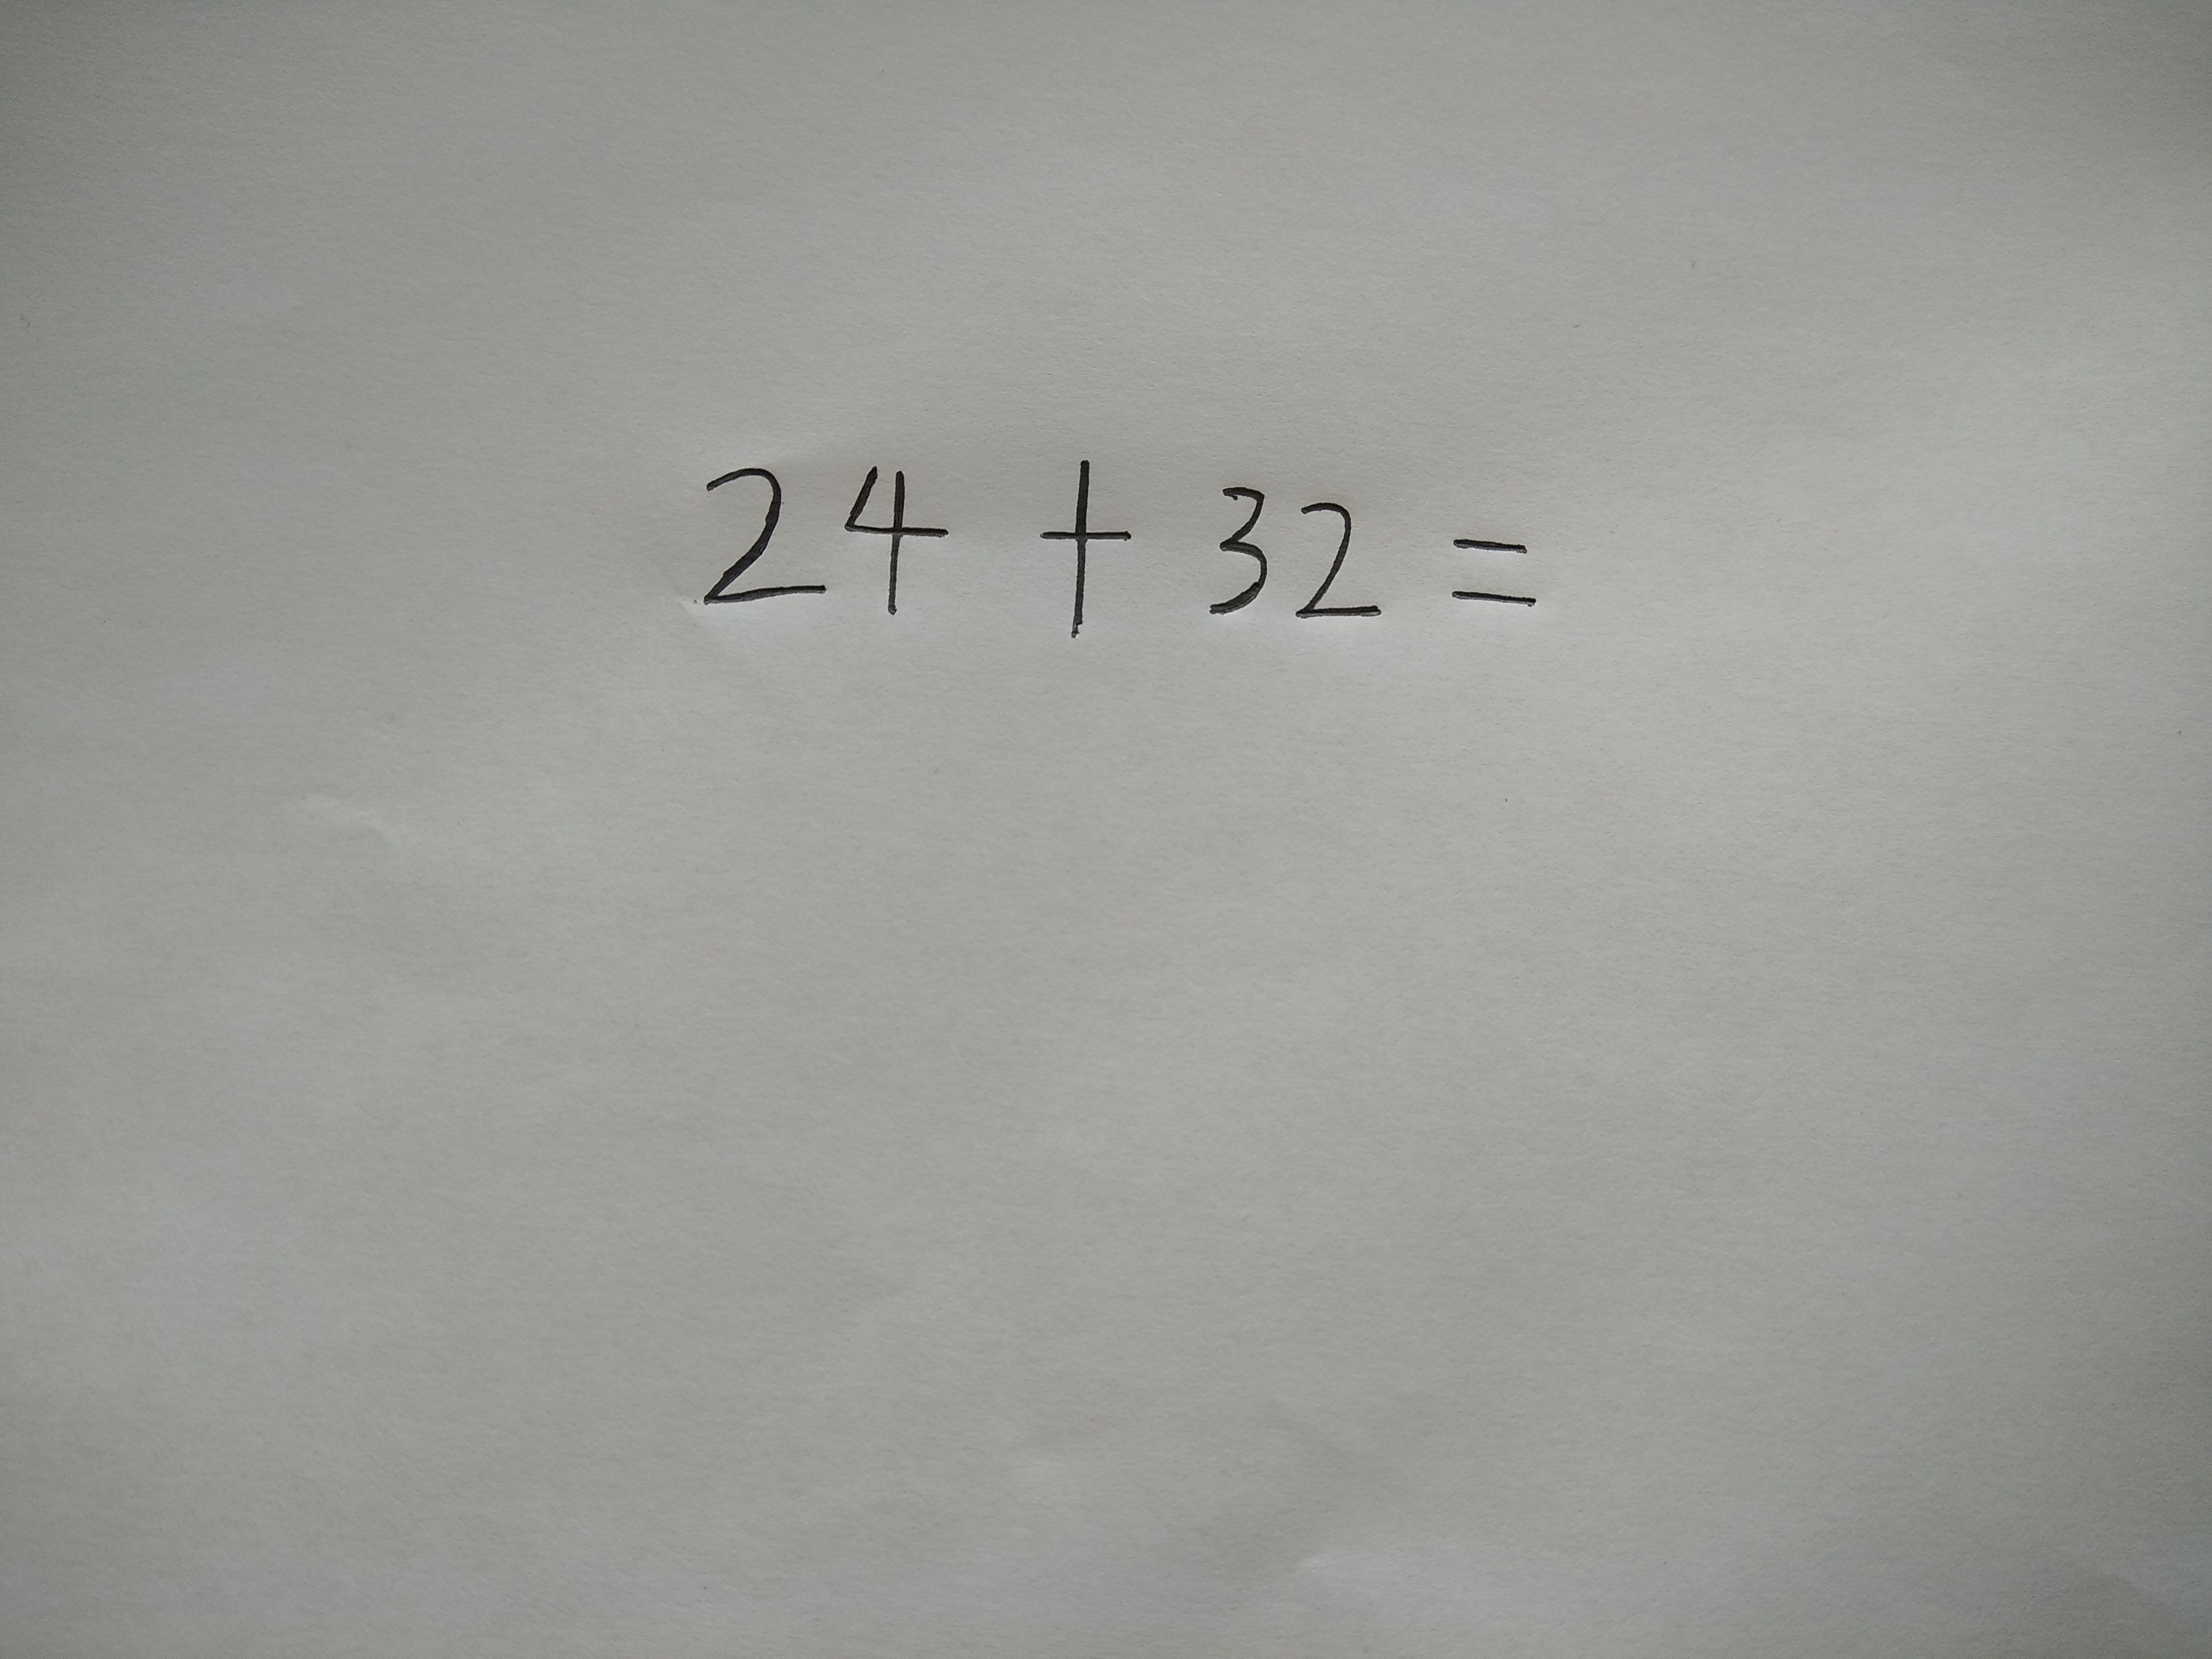 24 + 32 =